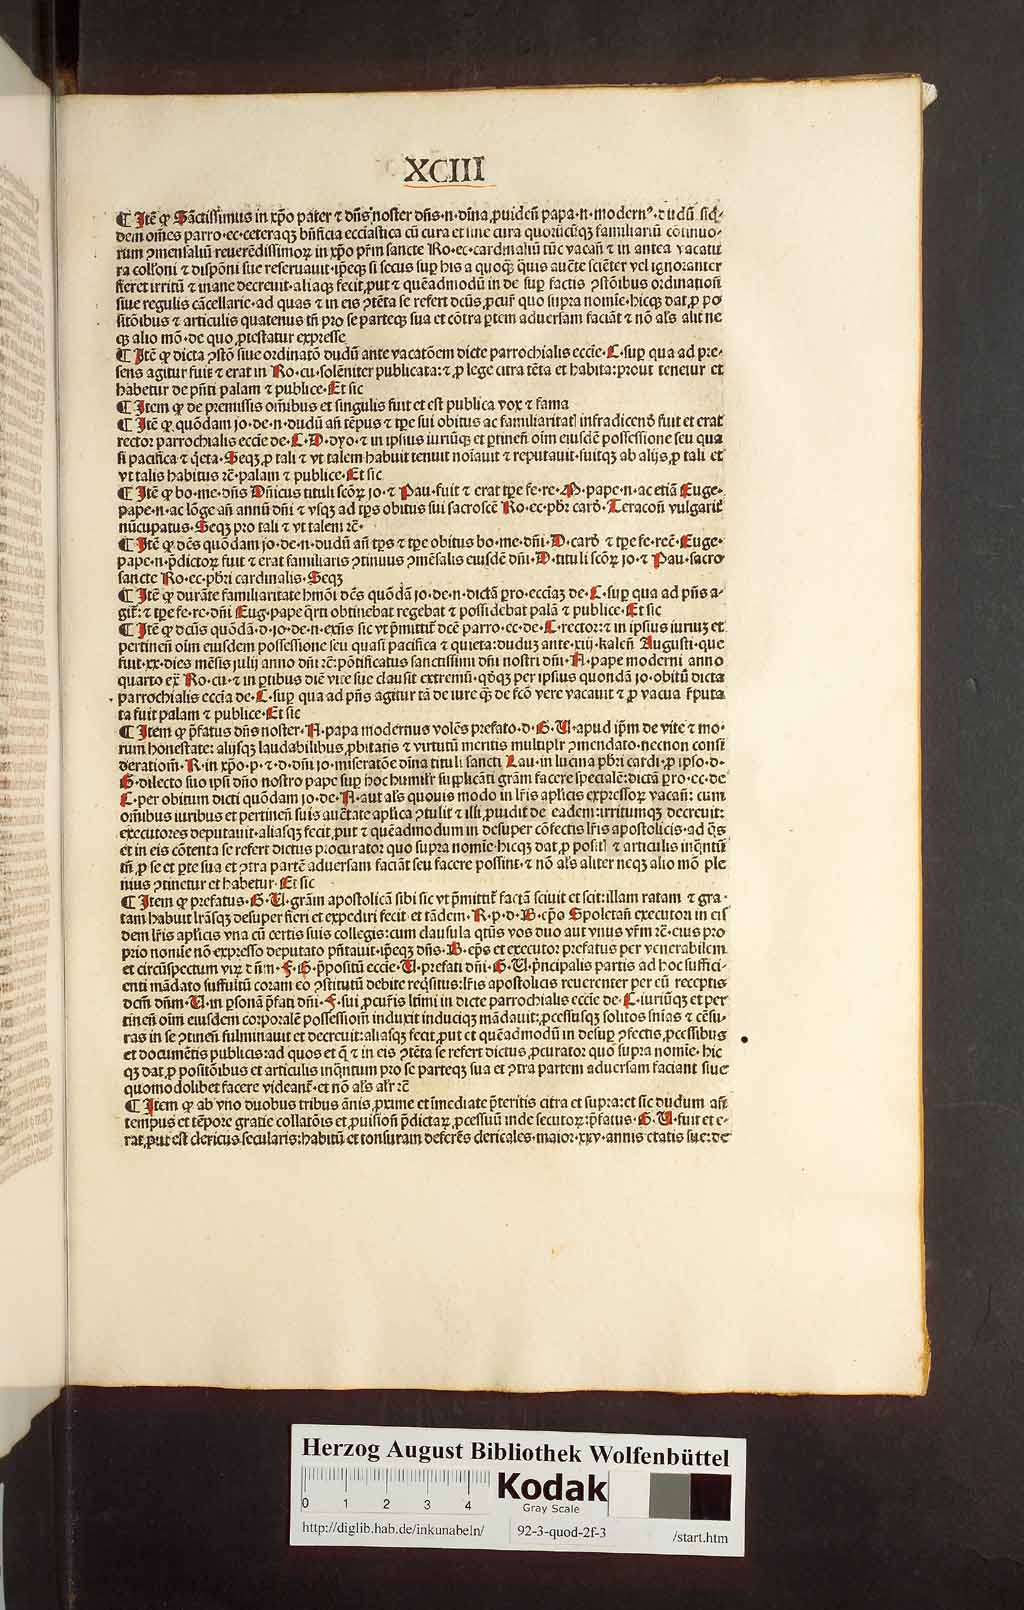 XCIII
¶ Itē ꝙ Sāctissimus in xp̄o pater ⁊ dn̄s noster dn̄s·n·dīna ꝓuidēn̄ papa·n·modernꝰ·dudū siq̄-
dem om̄es parro·ec·ceteraqꝫ bn̄ficia eccīastica cū cura et sine cura quorūcūqꝫ familiariū cōtinuo-
rum ꝯmensaliū reuerēdissimoꝝ in xp̄o pr̄m sancte Ro·ec·cardinaliū tūc vacan̄ ⁊ in antea vacatu
ra coll̄oni ⁊ disponi sue reseruauit·ip̄eqꝫ si secus suꝑ his a quoqꝫ q̄uis auc̄te sciēter vel ignoranter
fieret irritū ⁊ inane decreuit·aliaqꝫ fecit ꝓut ⁊ quēadmodū in de suꝑ factis ꝯstōibus ordinationi
siue regulis cācellarie·ad quas ⁊ in eis ꝯtēta se refert dc̄us ꝓcur̄ quo supra nomīe·hicqꝫ dat ꝓ po
sitōibus ⁊ articulis quatenus tn̄ pro se parteqꝫ sua et cōtra ꝑtem aduersam faciāt ⁊ nō al̄s alit̄ ne
qꝫ alio mō·de quo ꝓtestatur expresse
¶ Itē ꝙ dicta ꝯstō siue ordinatō dudū ante vacatōem dicte parrochialis eccīe·C·suꝑ qua ad pre-
sens agitur fuit ⁊ erat in Ro·cu·solēniter publicata:⁊ ꝓ lege citra tēta et habita:prout tenetur et
habetur de pn̄ti palam ⁊ publice·Et sic
¶ Item ꝙ de premissis om̄ibus et singulis fuit et est publica vox ⁊ fama
¶ Itē ꝙ quōdam jo·de·n·dudū an̄ tēpus ⁊ tꝑe sui obitus ac familiaritatī infradicendo fuit et erat
rector parrochialis eccīe de·C·D·dyo·⁊ in ipsius iuriūqꝫ et ꝑtinen̄ oīm eiusdē possessione seu qua
si pacifica ⁊ q̄eta·Seqꝫ ꝓ tali ⁊ vt talem habuit tenuit noīauit ⁊ reputauit·suitqꝫ ab alijs ꝓ tali et
vt talis habitus rc̄·palam ⁊ publice·Et sic
¶ Itē ꝙ bo·me·dn̄s Dn̄icus tituli scōꝝ jo·⁊ Pau·fuit ⁊ erat tꝑe fe·re·M·pape·n·ac etiā Euge·
pape·n·ac lōge an̄ annū dn̄i ⁊ vsqꝫ ad tꝑs obitus sui sacroscē Ro·ec·pb̄r card̄·Teracon̄ vulgarit̄
nūcupatus·Seqꝫ pro tali ⁊ vt talem rc̄·
¶ Itē ꝙ dc̄s quōdam jo·de·n·dudū an̄ tꝑs ⁊ tꝑe obitus bo·me·dn̄i·D·card̄ ⁊ tꝑe fe·rec̄·Euge·
pape·n·p̄dictoꝝ fuit ⁊ erat familiaris ꝯtinuus ꝯmēsalis eiusdē dn̄i·D·tituli scōꝝ jo·⁊ Pau·sacro
sancte Ro·ec·pb̄ri cardinalis·Seqꝫ
¶ Itē ꝙ durāte familiaritate hmōi dc̄s quōdā jo·de·n·dictā pro·eccīaꝫ de·C·suꝑ qua ad pn̄s a-
git̄:⁊ tꝑe fe·re·dn̄i Eug·pape q̄rti obtinebat regebat ⁊ possidebat palā ⁊ publice·Et sic
¶ Itē ꝙ dc̄us quōdā·d·jo·de·n·exn̄s sic vt p̄mittit̄ dc̄e parro·ec·de·C·rector:⁊ in ipsius iuriuꝫ et
pertinen̄ oīm eiusdem possessione seu quasi pacifica ⁊ quieta:duduꝫ ante·xiij·kalen̄ Augusti·que
fuit·xx·dies mēsis julij anno dn̄i rc̄:pōtificatus sanctissimi dn̄i nostri dn̄i·N·pape moderni anno
quarto ex̄ Ro·cu·⁊ in ꝑtibus diē vite sue clausit extremū·q̄ōqꝫ per ipsius quondā jo·obitū dicta
parrochialis eccīa de·C·suꝑ qua ad pn̄s agitur tā de iure qꝫ de fcō vere vacauit ⁊ ꝓ vacua r̄puta
ta fuit palam ⁊ publice·Et sic
¶ Item ꝙ p̄fatus dn̄s noster·N·papa modernus volēs prefato·d·G·U·apud ip̄m de vite ⁊ mo-
rum honestate: alijsqꝫ laudabilibus ꝓbitatis ⁊ virtutū meritis multiplr̄ ꝯmendato·necnon consī
deratiom̄·R·in xp̄o·p·⁊·d·dn̄i jo·miseratōe dīna tituli sancti Lau·in lucina pb̄ri cardi·ꝓ ipso·d·
G·dilecto suo ipsi dn̄o nostro pape suꝑ hoc humilr̄ supplicāti grām facere specialē:dictā pro·ec·de
C·per obitum dicti quōdam jo·de·N·aut al̄s quouis modo in lr̄is aplicis expressoꝝ vacan̄: cum
om̄ibus iuribus et pertinen̄ suis auc̄tate aplica ꝯtulit ⁊ illi ꝓuidit de eadem:irritumqꝫ decreuit:
executores deputauit·aliasqꝫ fecit ꝓut ⁊ quēadmodum in desuper cōfectis lr̄is apostolicis·ad q̄s
et in eis cōtenta se refert dictus procurator quo supra nomīe·hicqꝫ dat ꝓ positī ⁊ articulis inq̄ntū
tn̄ ꝓ se et ꝑte sua et ꝯtra partē aduersam faciāt seu facere possint·⁊ nō al̄s aliter necqꝫ alio mō ple
nius ꝯtinetur et habetur·Et sic
¶ Item ꝙ prefatus·G·U·grām apostolicā sibi sic vt p̄mittit̄ factā sciuit et scit:illam ratam ⁊ gra-
tam habuit lr̄asqꝫ desuper fieri et expediri fecit et tādem·R·p·d·B·ep̄o Spoletan̄ executori in eis
dem lr̄is aplicis vna cū certis suis collegis:cum clausula qt̄us vos duo aut vnus vr̄m rc̄·eius pro
prio nomīe nō expresso deputato pn̄tauit·ip̄eqꝫ dn̄s·B·ep̄s et executor prefatus per venerabilem
et circūspectum virꝫ dn̄m·F·G·p̄positū eccīe·U·prefati dn̄i·G·U·p̄ncipalis partis ad hoc suffici-
enti mādato suffultū coram eo ꝯstitutū debite req̄situs:lr̄is apostolicis reuerenter per eū receptis
dcm̄ dn̄m·U·in ꝑsonā p̄fati dn̄i·F·sui ꝓcur̄is ltīmi in dicte parrochialis eccīe de·C·iuriūqꝫ et per
tinen̄ oīm eiusdem corporalē possessiōm induxit induciqꝫ mādauit:ꝓcessusqꝫ solitos snīas ⁊ cēsu-
ras in se ꝯtinen̄ fulminauit et decreuit:aliasqꝫ fecit ꝓut et quēadmodū in desuꝑ ꝯfectis ꝓcessibus
et documētis publicis:ad quos et q̄ ⁊ in eis ꝯtēta se refert dictus ꝓcurator quo supra nomīe·hic
qꝫ dat ꝓ positōibus et articulis inq̄ntum pro se parteqꝫ sua et ꝯtra partem aduersam faciant siue
quomodolibet facere videant̄·et nō al̄s alr̄ rc̄
¶ Item ꝙ ab vno duobus tribus ānis ꝓxime et īmediate p̄teritis citra et supra:et sic dudum an̄
tempus et tēpore gratie collatōis et ꝓuision̄ p̄dictaꝝ ꝓcessuū inde secutoꝝ:p̄fatus·G·U·fuit et e-
rat ꝓut est clericus secularis:habitū et tonsuram deferēs clericales·maior·xxv·annis etatis sue:de
Herzog August Bibliothek Wolfenbüttel
0 1 2 3 4
Kodak
Gray Scale
http://diglib.hab.de/inkunabeln/ 92-3-quod-2f-3 /start.htm